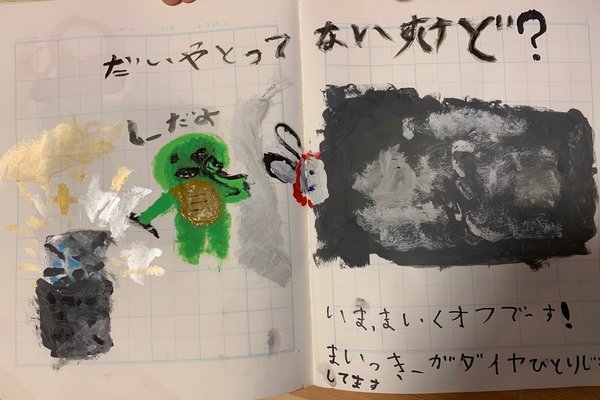 だいやとって ないすけど?
しーだよ
いま、まいくオフでーす!
まいっきーがダイヤひとりじ
してます